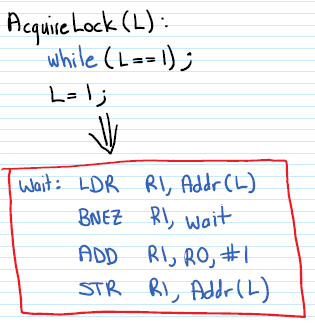 AcquireLock(L):
while(L==1);
L=1;
Wait: LDR R1, Addr(L)
BNEZ R1, wait
ADD R1, R0, #1
STR R1, Addr(L)